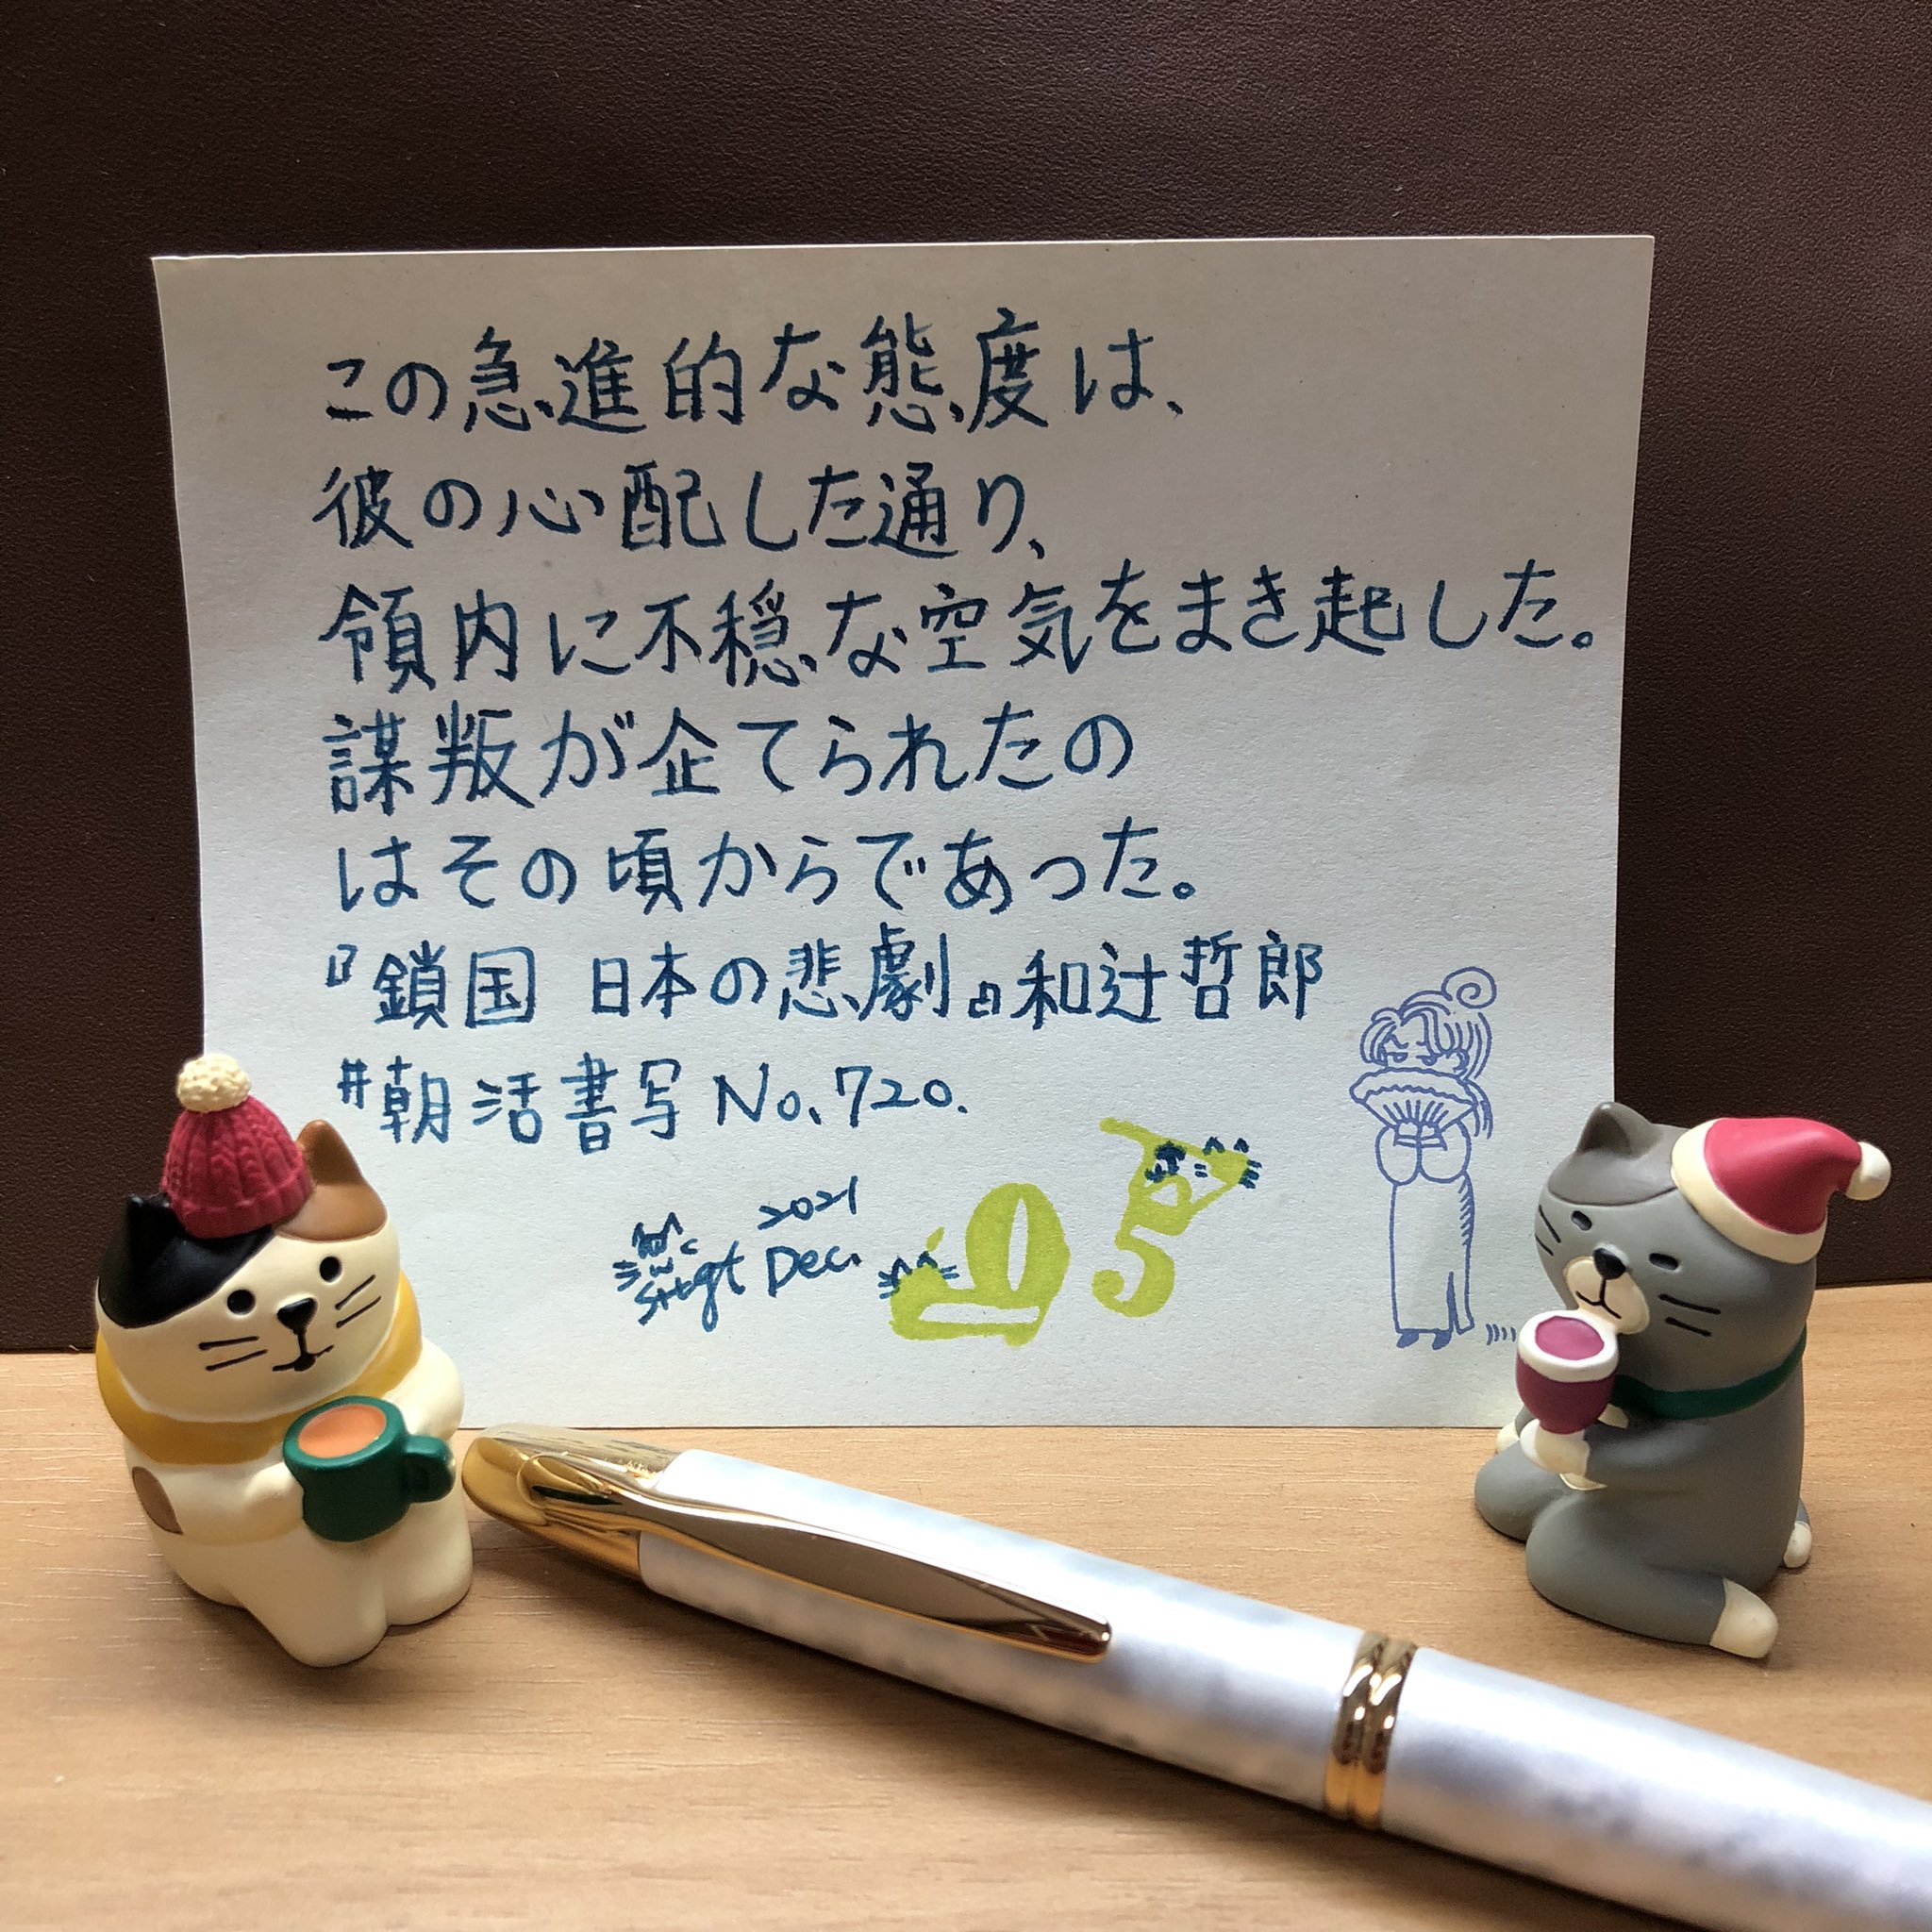 この急進的な態度は、
彼の心配した通り、
領内に不穏な空気をまき起した。
謀叛が企てられたの
はその頃からであった。
『鎖国 日本の悲劇』和辻哲郎
#朝活書写 No.720.
2021
Sttgt Dec. 05